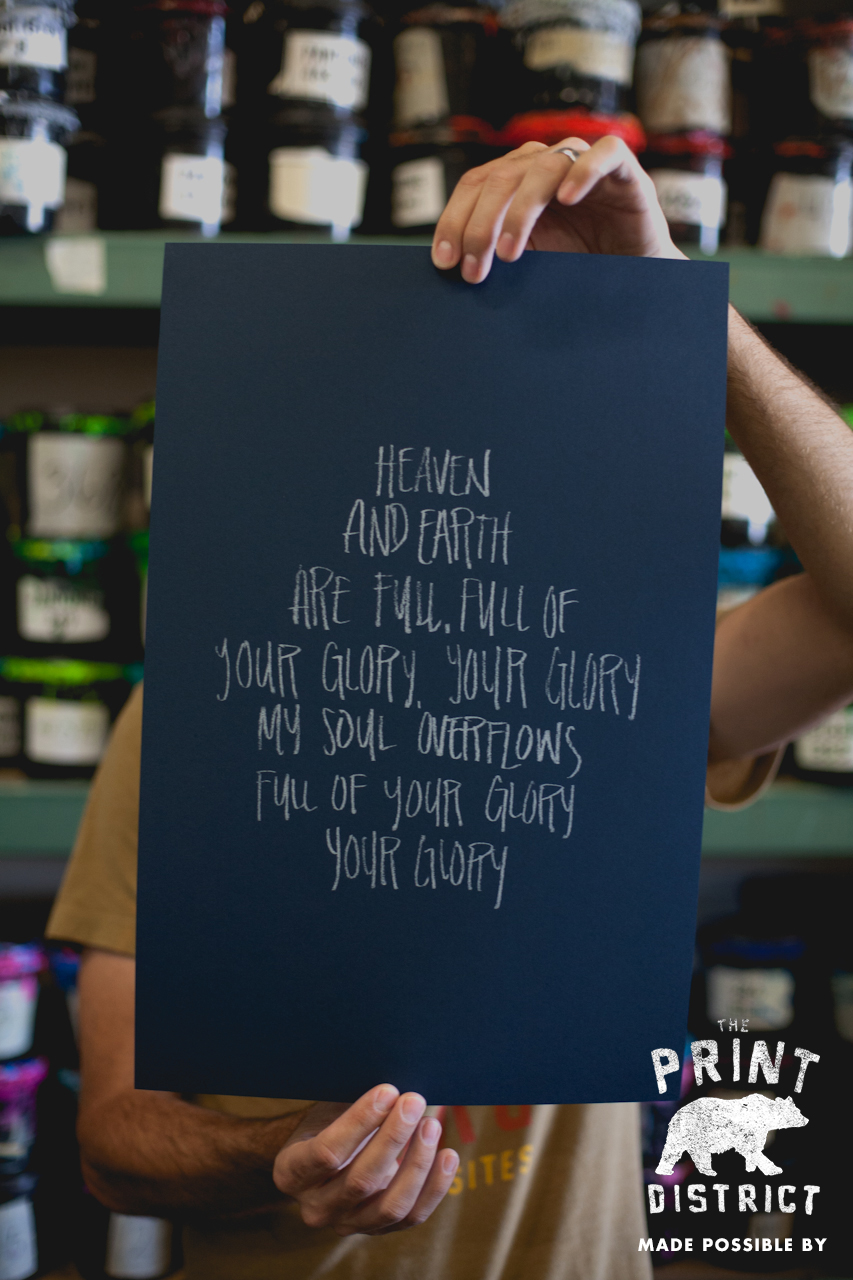 HEAVEN
AND EARTH
ARE FULL, FULL OF
YOUR GLORY, YOUR GLORY
MY SOUL OVERFLOWS
FULL OF YOUR GLORY
YOUR GLORY
SITES
THE
PRINT
DISTRICT
MADE POSSIBLE BY